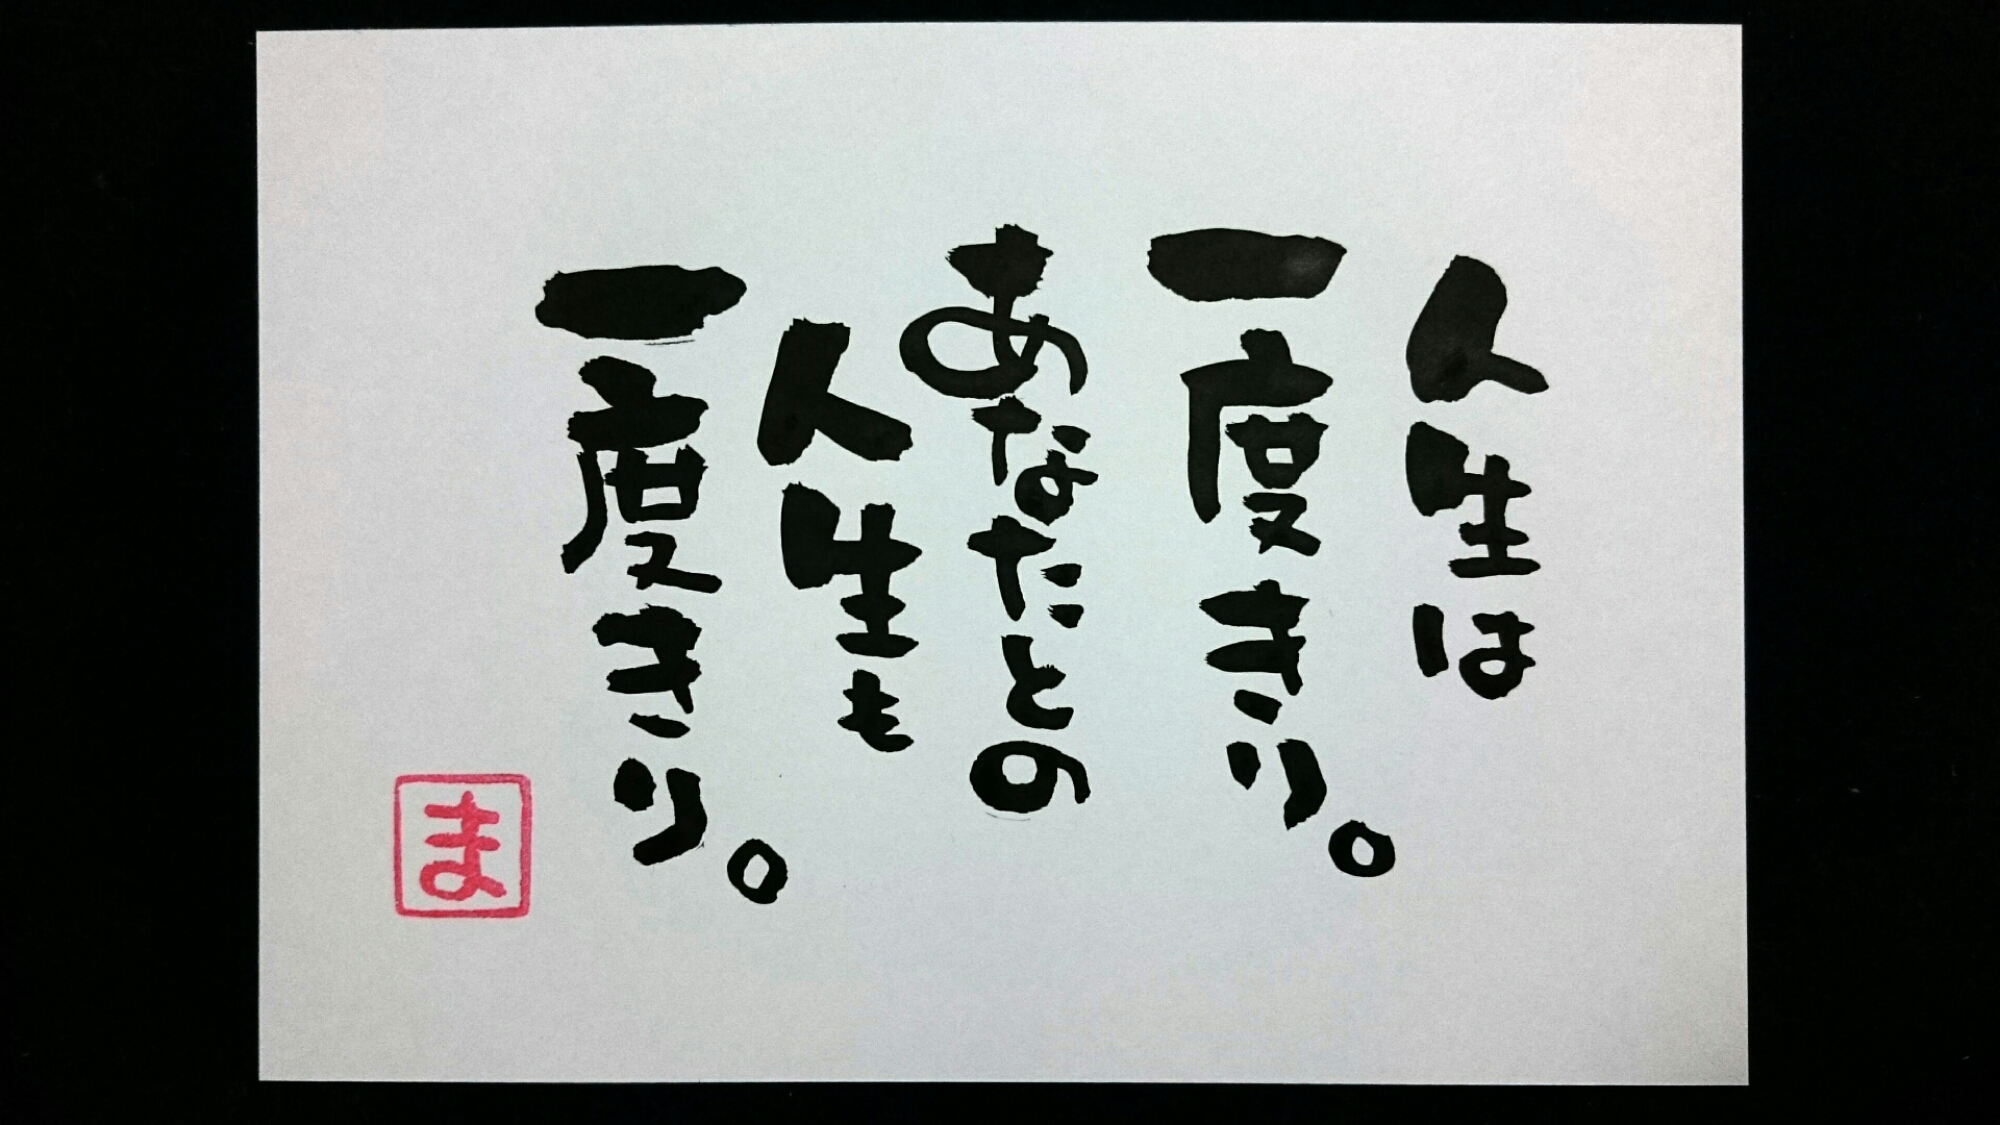 人生は
一度きり。
あなたとの
人生も
一度きり。
ま